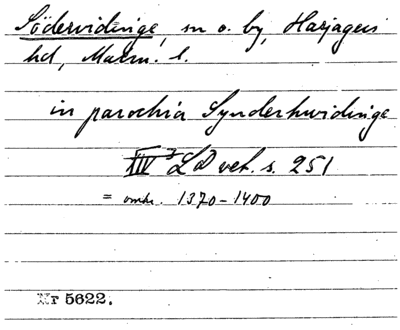 Södervidinge, sn o. by, Harjagers
hd, Malm. l.
in parochia Synderhwidinge
XIV 3 LD vet. s. 251
= omkr. 1370-1400
Nr 5622.